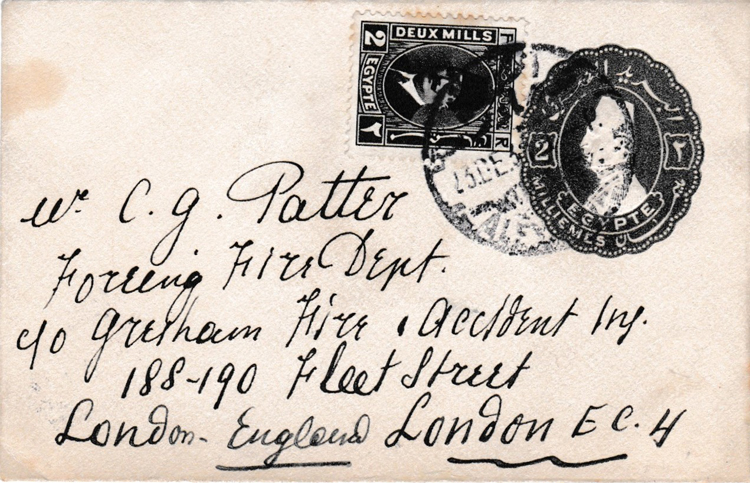 DEUX MILLS
2
EGYPTE
٢
R
البريد
2
٢
EGYPTE
MILLIEMES
23 DE
ALE
Mr. C. G. Patter
Foreing Fire Dept.
c/o Gresham Fire & Accident Ins.
188-190 Fleet Street
London - England London E C. 4